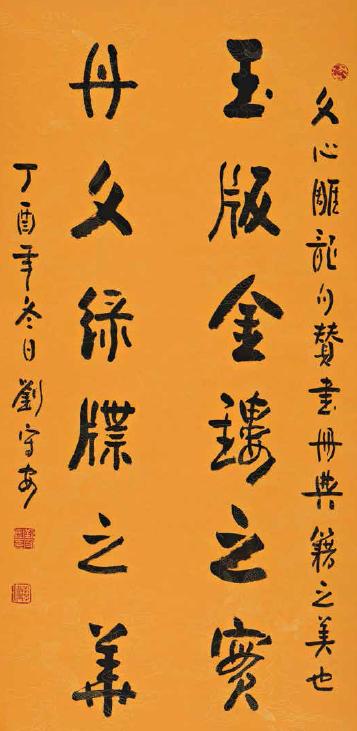 文心雕龍句贊書冊典籍之美也
玉版金鏤之實
丹文緑牒之華
丁酉年冬日劉守安